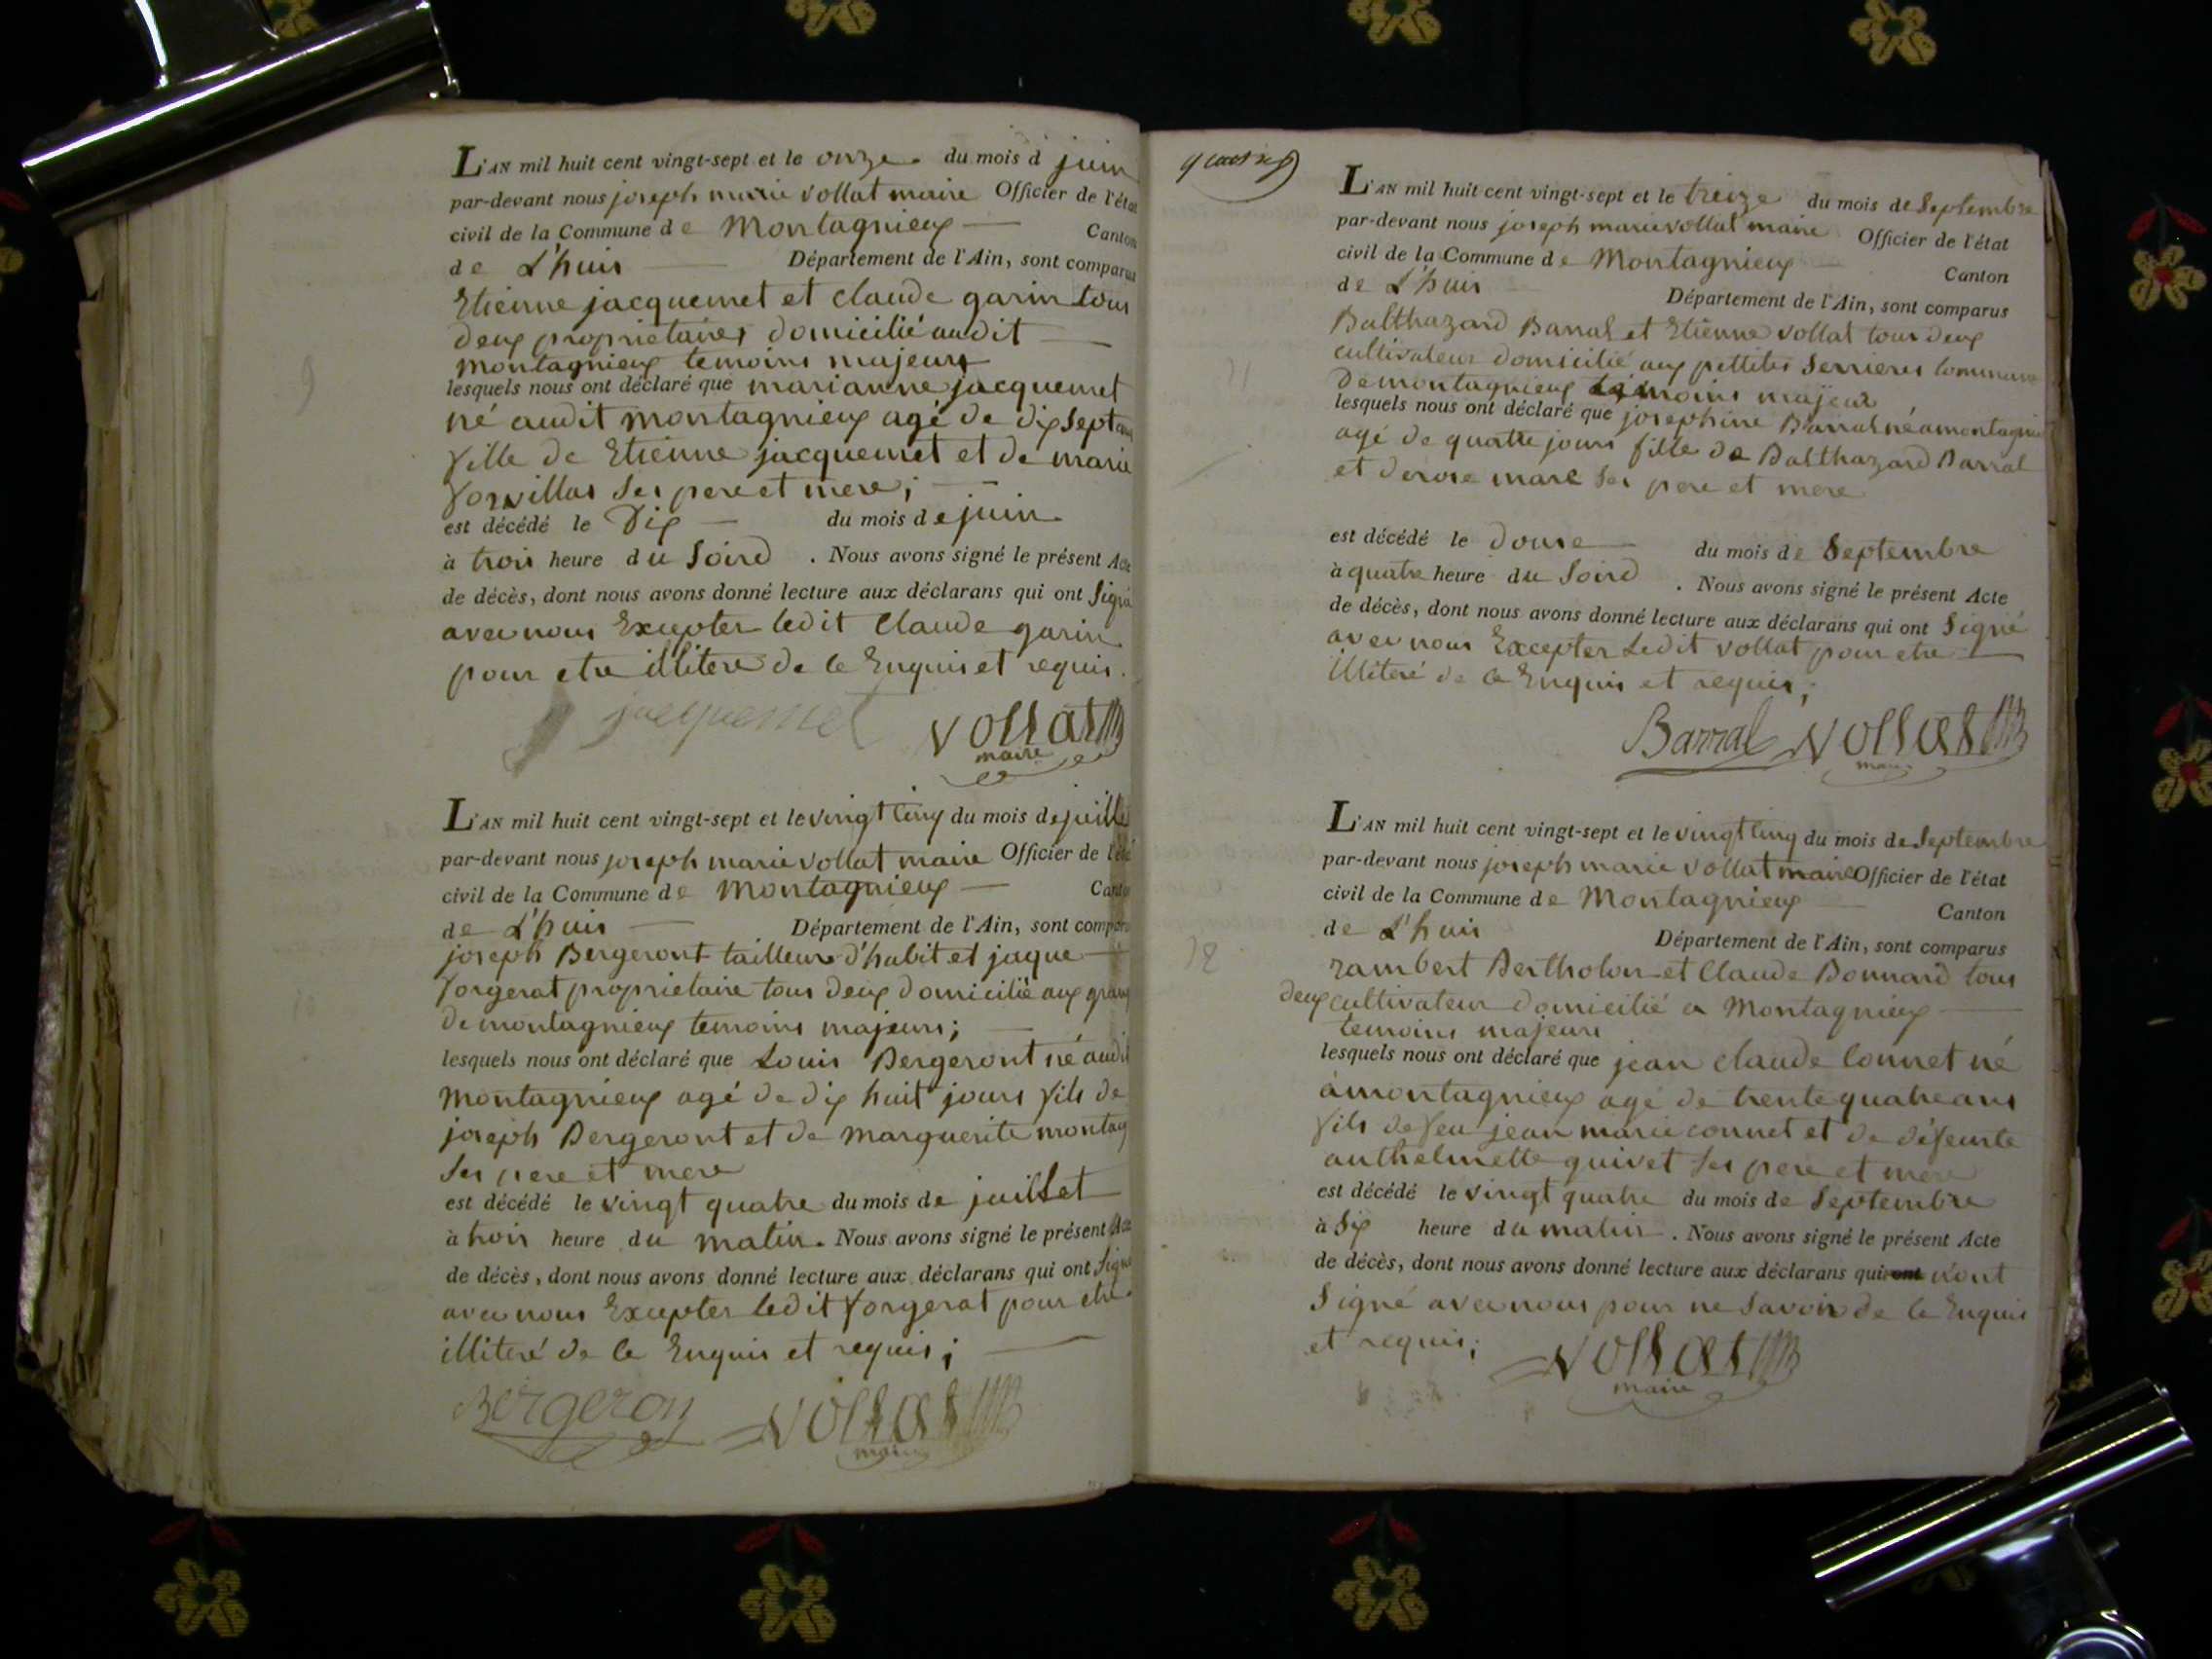 L'AN mil huit cent vingt-sept et le onze du mois d juin
par-devant nous joseph marie vollat maire Officier de l'état
civil de la Commune de Montagnieux — Canton
de L'huis — Département de l'Ain, sont comparus
Etienne jacquemet et claude garin tous
deux proprietaires domicilié audit —
montagnieux temoins majeurs
lesquels nous ont déclaré que marianne jacquemet
né audit montagnieux agé de dix sept ans
fille de Etienne jacquemet et de marie
ses pere et mere; —
est décédé le Dix — du mois de juin
à trois heure du soird . Nous avons signé le présent Acte
de décès, dont nous avons donné lecture aux déclarans qui ont Signé
avec nous Excepter ledit Claude garin
pour etre illiteré de ce Enquis et requis.
jacquemet vollat
maire
L'AN mil huit cent vingt-sept et le vingt cinq du mois de juillet
par-devant nous joseph marie vollat maire Officier de l'état
civil de la Commune de Montagnieux — Canton
de L'huis — Département de l'Ain, sont comparus
joseph Bergeront tailleur d'habit et jaque —
forgerat proprietaire tous deux domicilié aux
de montagnieux temoins majeurs; —
lesquels nous ont déclaré que Louis Bergeront né audit
Montagnieux agé de dix huit jours fils de
joseph Bergeront et de Marguerite montag
ses pere et mere
est décédé le vingt quatre du mois de juillet
à trois heure du matin. Nous avons signé le présent Acte
de décès, dont nous avons donné lecture aux déclarans qui ont Signé
avec nous Excepter ledit forgerat pour etre
illiteré de ce Enquis et requis; —
Bergeron vollat
maire
L'AN mil huit cent vingt-sept et le treize du mois de Septembre
par-devant nous joseph marie vollat maire Officier de l'état
civil de la Commune de Montagnieux — Canton
de L'huis Département de l'Ain, sont comparus
Balthazard Barral et Etienne vollat tous deux
cultivateur domicilié aux pettites Serrieres Commune
de montagnieux temoins majeur
lesquels nous ont déclaré que josephine Barral né a montagnieux
agé de quatre jours fille de Balthazard Barral
et de rose mare ses pere et mere
est décédé le douse — du mois de Septembre
à quatre heure du Soird . Nous avons signé le présent Acte
de décès, dont nous avons donné lecture aux déclarans qui ont Signé
avec nous Excepter Ledit vollat pour etre —
illiteré de ce Enquis et requis;
Barral vollat
maire
L'AN mil huit cent vingt-sept et le vingt cinq du mois de Septembre
par-devant nous joseph marie vollat maire Officier de l'état
civil de la Commune de Montagnieux — Canton
de L'huis Département de l'Ain, sont comparus
rambert Bertholon et Claude Bonnard tous
deux cultivateur domicilié a Montagnieux —
temoins majeurs
lesquels nous ont déclaré que jean claude Connet né
à montagnieux agé de trente quatre ans
fils de feu jean marie connet et de défeunte
anthelmette quivet ses pere et mere
est décédé le vingt quatre du mois de Septembre
à Six heure du matin . Nous avons signé le présent Acte
de décès, dont nous avons donné lecture aux déclarans qui ont n'ont
Signé avec nous pour ne Savoir de ce Enquis
et requis;
vollat
maire